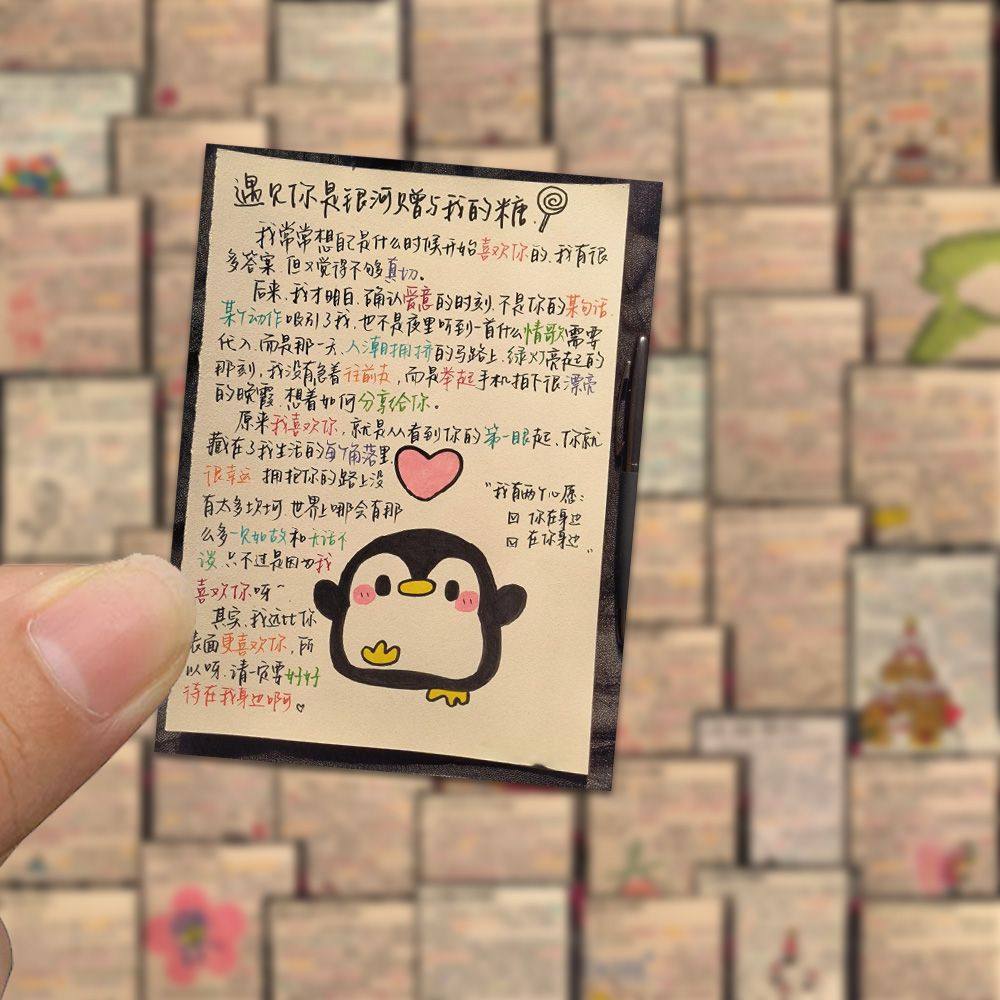 遇见你是银河赠与我的糖.
我常常想自己是什么时候开始喜欢你的.我有很
多答案.但又觉得不够真切。
后来.我才明白.确认爱意的时刻.不是你的某句话.
某个动作吸引了我.也不是夜里听到一首什么情歌需要
代入.而是那一天.人潮拥挤的马路上.绿灯亮起的
那刻,我没有急着往前走,而是举起手机拍下很漂亮
的晚霞.想着如何分享给你。
原来我喜欢你.就是从看到你的第一眼起.你就
藏在了我生活的每个角落里.
很幸运 拥抱你的路上没
有太多坎坷.世界上哪会有那
么多一见如故和无话不
谈.只不过是因为我
喜欢你呀~
其实.我远比你
表面更喜欢你,所
以呀.请一定要好好
待在我身边啊♡
"我有两个心愿:
☑ 你在身边
☑ 在你身边"